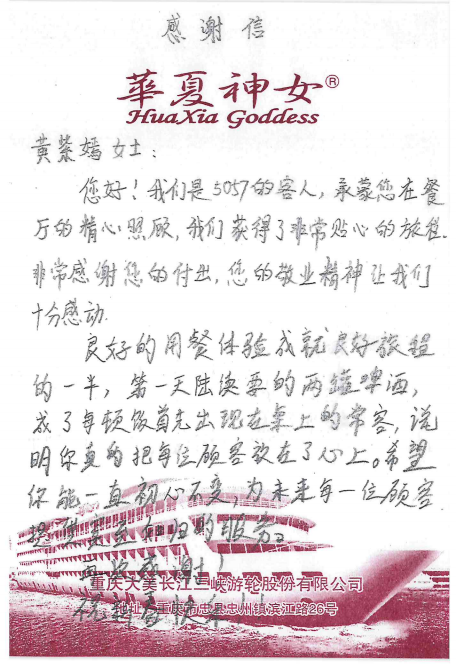 感谢信
華夏神女®
HuaXia Goddess
黄紫嫣女士:
您好!我们是5057的客人,承蒙您在餐
厅的精心照顾,我们获得了非常贴心的旅程.
非常感谢您的付出,您的敬业精神让我们
十分感动.
良好的用餐体验成就良好旅程
的一半,第一天陆续要的两罐啤酒,
成了每顿饭首先出现在桌上的常客,说
明你真的把每位顾客放在了心上。希望
你能一直初心不变,为未来每一位顾客
提供宾至如归的服务。
再次感谢!
重庆大美长江三峡游轮股份有限公司
地址:重庆市忠县忠州镇滨江路26号
祝新春快乐!